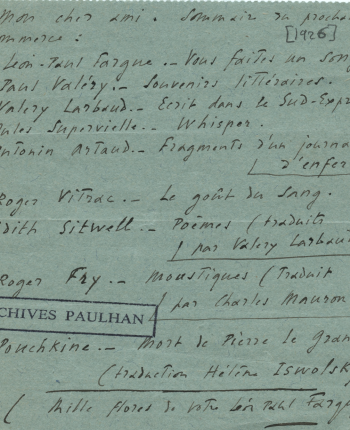 Mon cher ami. Sommaire du prochai
[1926]
ommerce :
Léon-Paul Fargue.- Vous faites un song
Paul Valéry.- Souvenirs littéraires.
Valery Larbaud.- Ecrit dans le Sud-Expr
ules Supervielle.- Whisper.
ntonin Artaud.- Fragments d'un journa
d'enfer
Roger Vitrac.- Le goût du sang.
dith Sitwell.- Poèmes (traduits
par Valery Larbaud
Roger Fry.- Moustiques (Traduit
par Charles Mauron
CHIVES PAULHAN
Pouchkine.- Mort de Pierre le Gran
(traduction Hélène Iswolsky
( Mille flores de votre Léon Paul Fargu